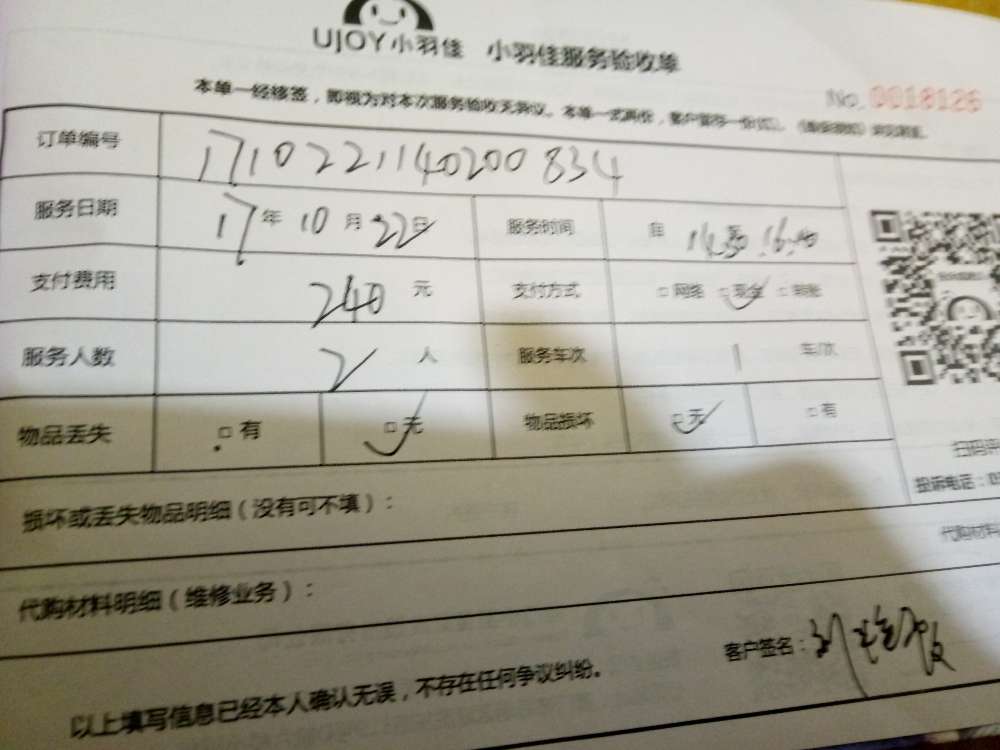 UJOY小羽佳 小羽佳服务验收单
本单一经修签，即视为对本次服务验收无异议。本单一式两份，客户留存一份
No. 0018126
订单编号 1710221140200834
服务日期 17年10月22日 服务时间 自
支付费用 240元 支付方式 □网络 □现金 □转账
服务人数 2人 服务车次 1 车/次
物品丢失 □有 □无 物品损坏 □无 □有
扫码评
投诉电话：
损坏或丢失物品明细（没有可不填）：
代购材料
代购材料明细（维修业务）：
客户签名：
以上填写信息已经本人确认无误，不存在任何争议纠纷。